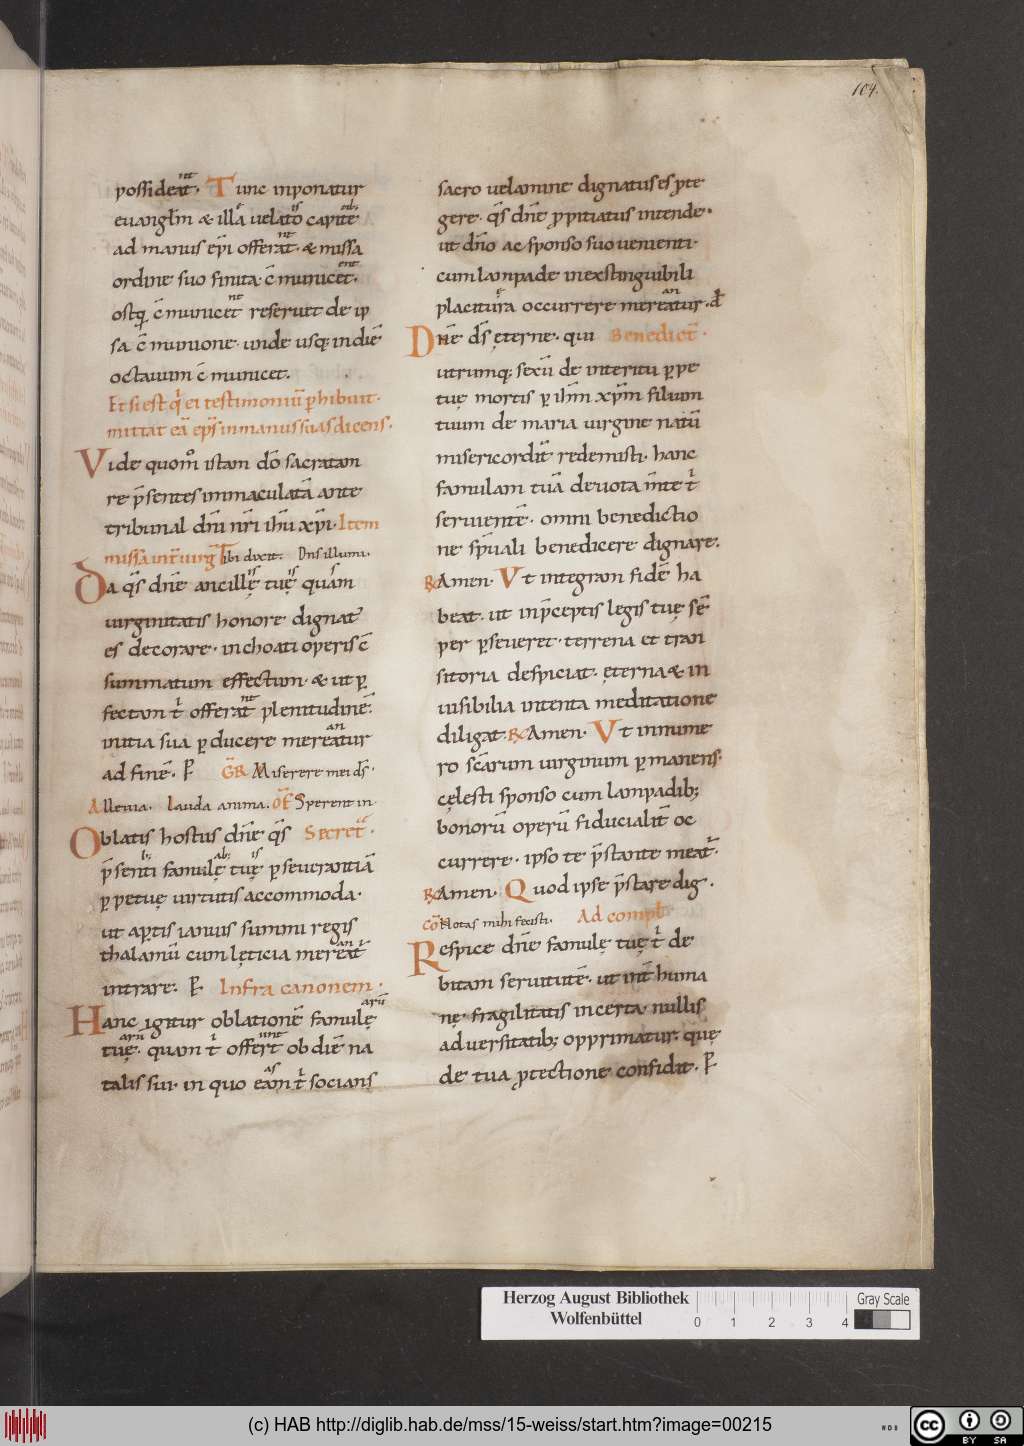 104.
possideat nt. Tunc inponatur
euangłm & illa velato is capite ib;
ad manus ep̄i offerat nt. & missa
ordine suo finita. c̄municet ent.
ostq; c̄municet nt reseruet de ip
sa c̄munione. unde usq; in diē
octauum c̄municet.
Et si est q̇ ei testimoniū ꝑhibuit.
mittat eā ep̄s in manus suas dicens.
Vide quom̊ istam dō sacratam
re p̄sentes immaculatā ante
tribunal dn̄i nr̄i ih̄u xp̄i. Item
missa int̄ uirḡ Tibi dixit. Dns illumi.
Da q̄s dn̄e ancillę is tuę is quam s
uirginitatis honore dignat
es decorare. inchoati operis c̄
summatum effectum. & ut ꝑ
fectam t̄ offerat nt plenitudinē.
initia sua ꝑducere mereatur an
ad finē. P GR̄ Miserere mei ds̄.
Alleuia. Lauda anima. OF̄ Sperent in
Oblatis hostiis dn̄e q̄s Secret̄.
p̄senti b; famulę ab; tuę is ꝑseuerantiā
ꝑpetuę uirtutis accommoda.
ut aꝑtis ianuis summi regis
thalamū cum lęticia mereat̄ an
intrare. P Infra canonem.
Hanc igitur oblationē famulę arū
tuę arū. quam t̄ offert unt ob diē na
talis sui. in quo eam as t̄ socians
sacro velamine dignatus es ꝓte
gere. q̄s dn̄e ꝓpitiatus intende.
ut dn̄o ac sponso suo uenienti.
cum lampade inextinguibili
placitura e occurrere mereatur an. đ
Dn̄e ds̄ ęterne. qui Benedict̄.
utrumq; sexū de interitu ꝑpe
tuę mortis ꝑ ih̄m xp̄m filium
tuum de maria uirgine natū
misericordit̄ redemisti. hanc
famulam tuā deuota m̄te t̄
seruientē. omni benedictio
ne sp̄uali benedicere dignare.
R̸ Amen. Vt integram fidē ha
beat. ut in p̄ceptis legis tuę sē
per ꝑseueret. terrena et tran
sitoria despiciat. ęterna & in
uisibilia intenta meditatione
diligat. R̸ Amen. Vt innume
ro sc̄arum uirginum ꝑmanens.
cęlesti sponso cum lampadib;
bonorū operū fiducialit̄ oc
currere. ipso te p̄stante meat̄.
R̸ Amen. Quod ipse p̄stare dig.
CŌ Notas mihi fecisti. Ad compł
Respice dn̄e famulę tuę t̄ de
bitam seruitutē. ut int̄ huma
nę fragilitatis incerta nullis
aduersitatib; opprimatur. quę
de tua ꝓtectione confidit. P
Herzog August Bibliothek
Wolfenbüttel
0 1 2 3 4
Gray Scale
(c) HAB http://diglib.hab.de/mss/15-weiss/start.htm?image=00215
cc BY SA